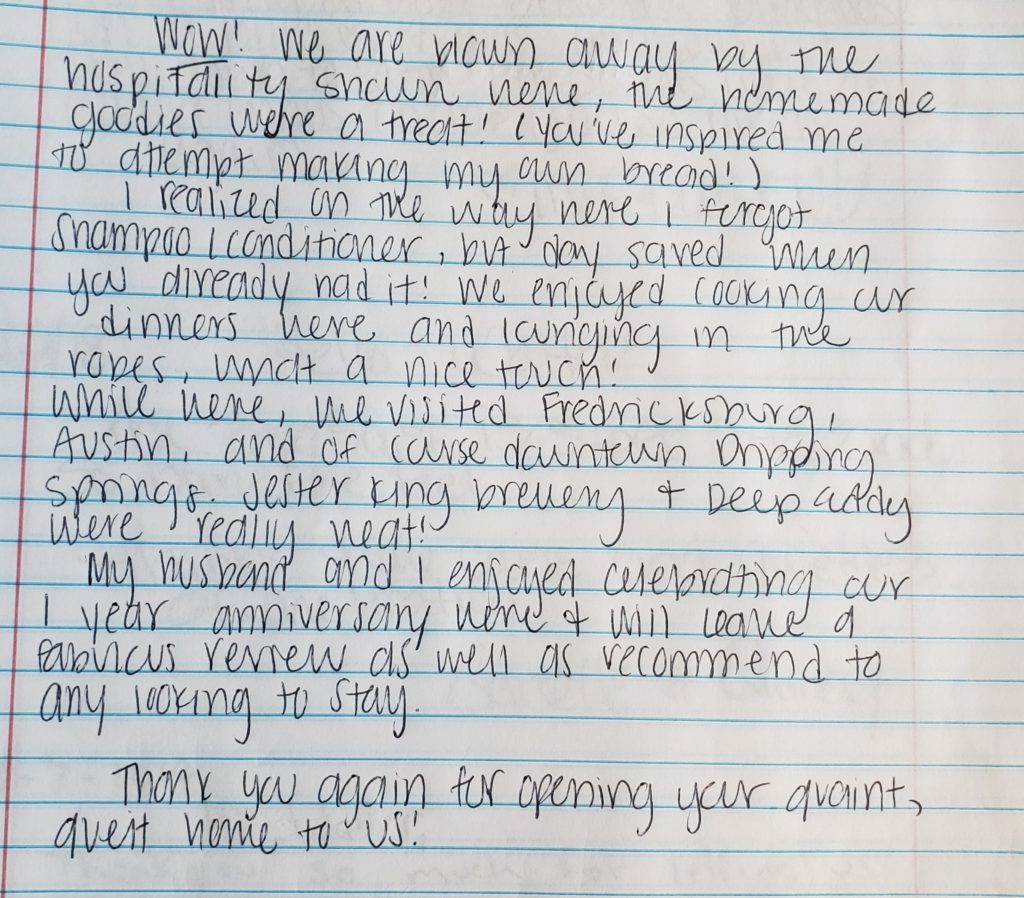 Wow! We are blown away by the
hospitality shown here, the homemade
goodies were a treat! (you've inspired me
to attempt making my own bread!)
I realized on the way here I forgot
shampoo/conditioner, but day saved when
you already had it! We enjoyed cooking our
dinners here and lounging in the
robes, what a nice touch!
While here, we visited Fredricksburg,
Austin, and of course downtown Dripping
Springs. Jester King brewery & Deep Eddy
were really neat!
My husband and I enjoyed celebrating our
1 year anniversary here & will leave a
fabulous review as well as recommend to
any looking to stay.
Thank you again for opening your quaint,
queit home to us!